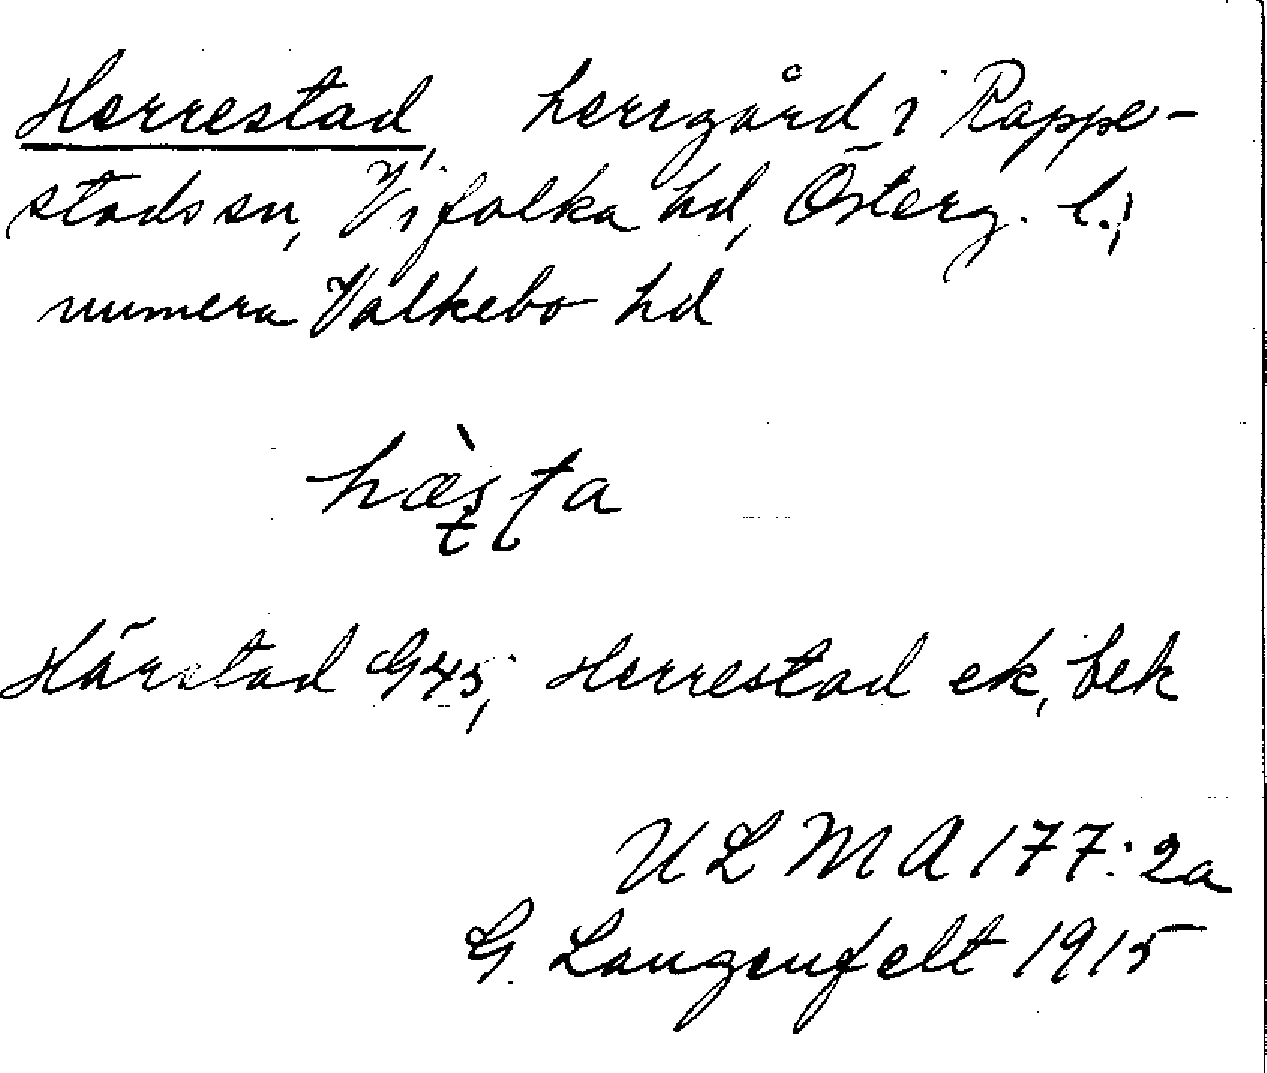 Herrestad, herrgård i Rappe-
stads sn, Vifolka hd, Österg. l.;
numera Valkebo hd
Härstad G45; Herrestad ek, bek
ULMA 177:2a
G. Langenfelt 1915